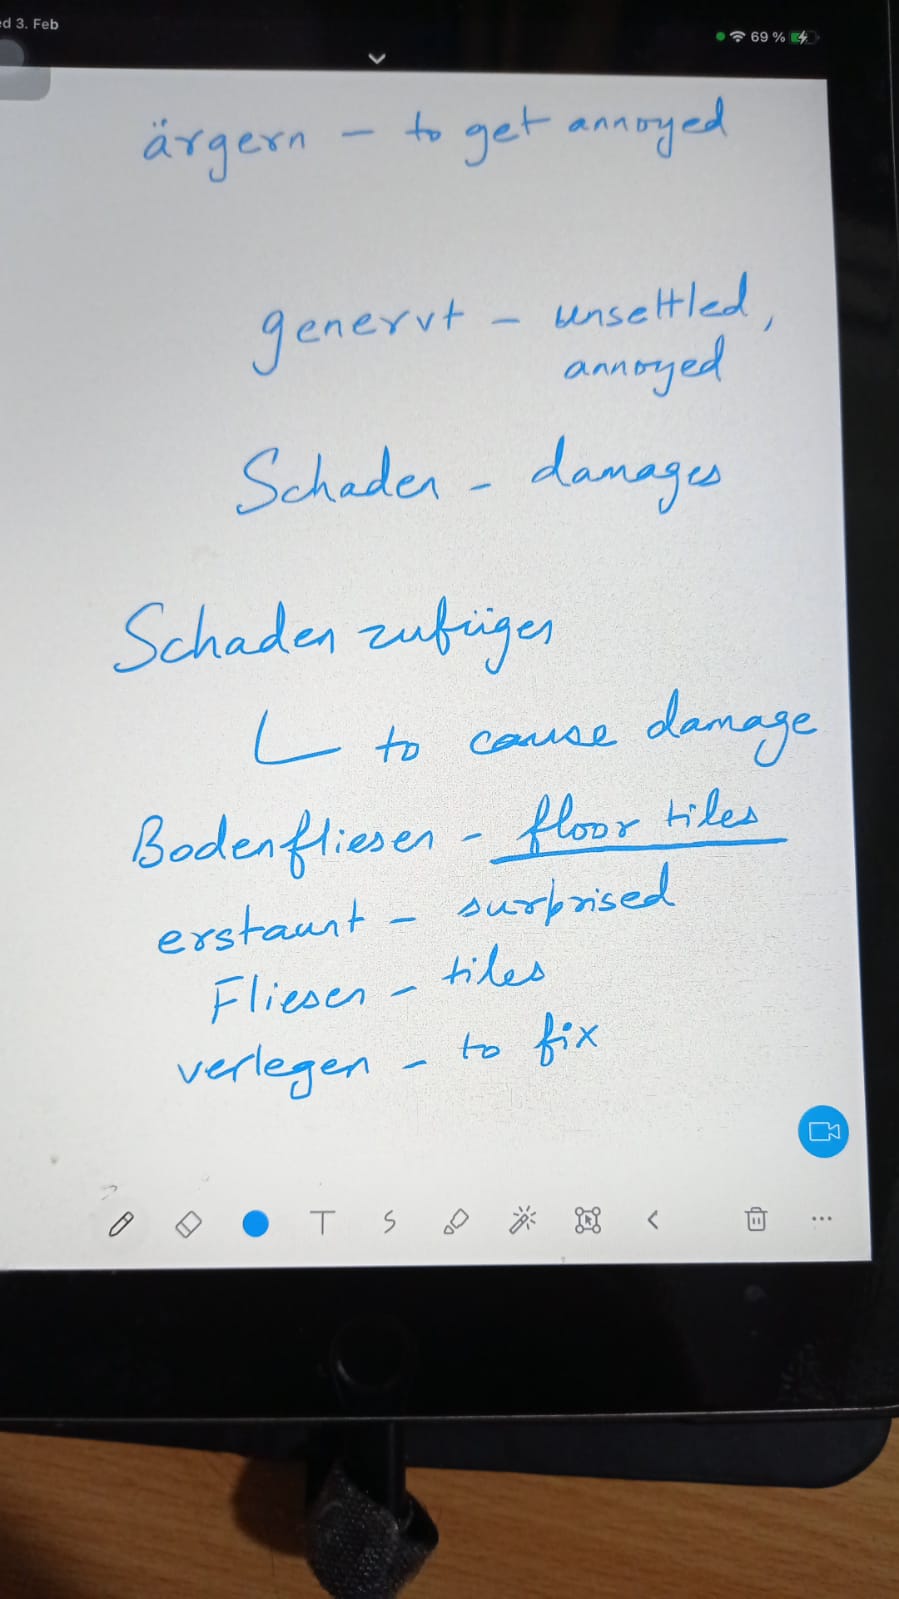 ed 3. Feb
69 %
ärgern - to get annoyed
genervt - unsettled,
annoyed
Schaden - damages
Schaden zufügen
to cause damage
Bodenfliesen - floor tiles
erstaunt - surprised
Fliesen - tiles
verlegen - to fix
T